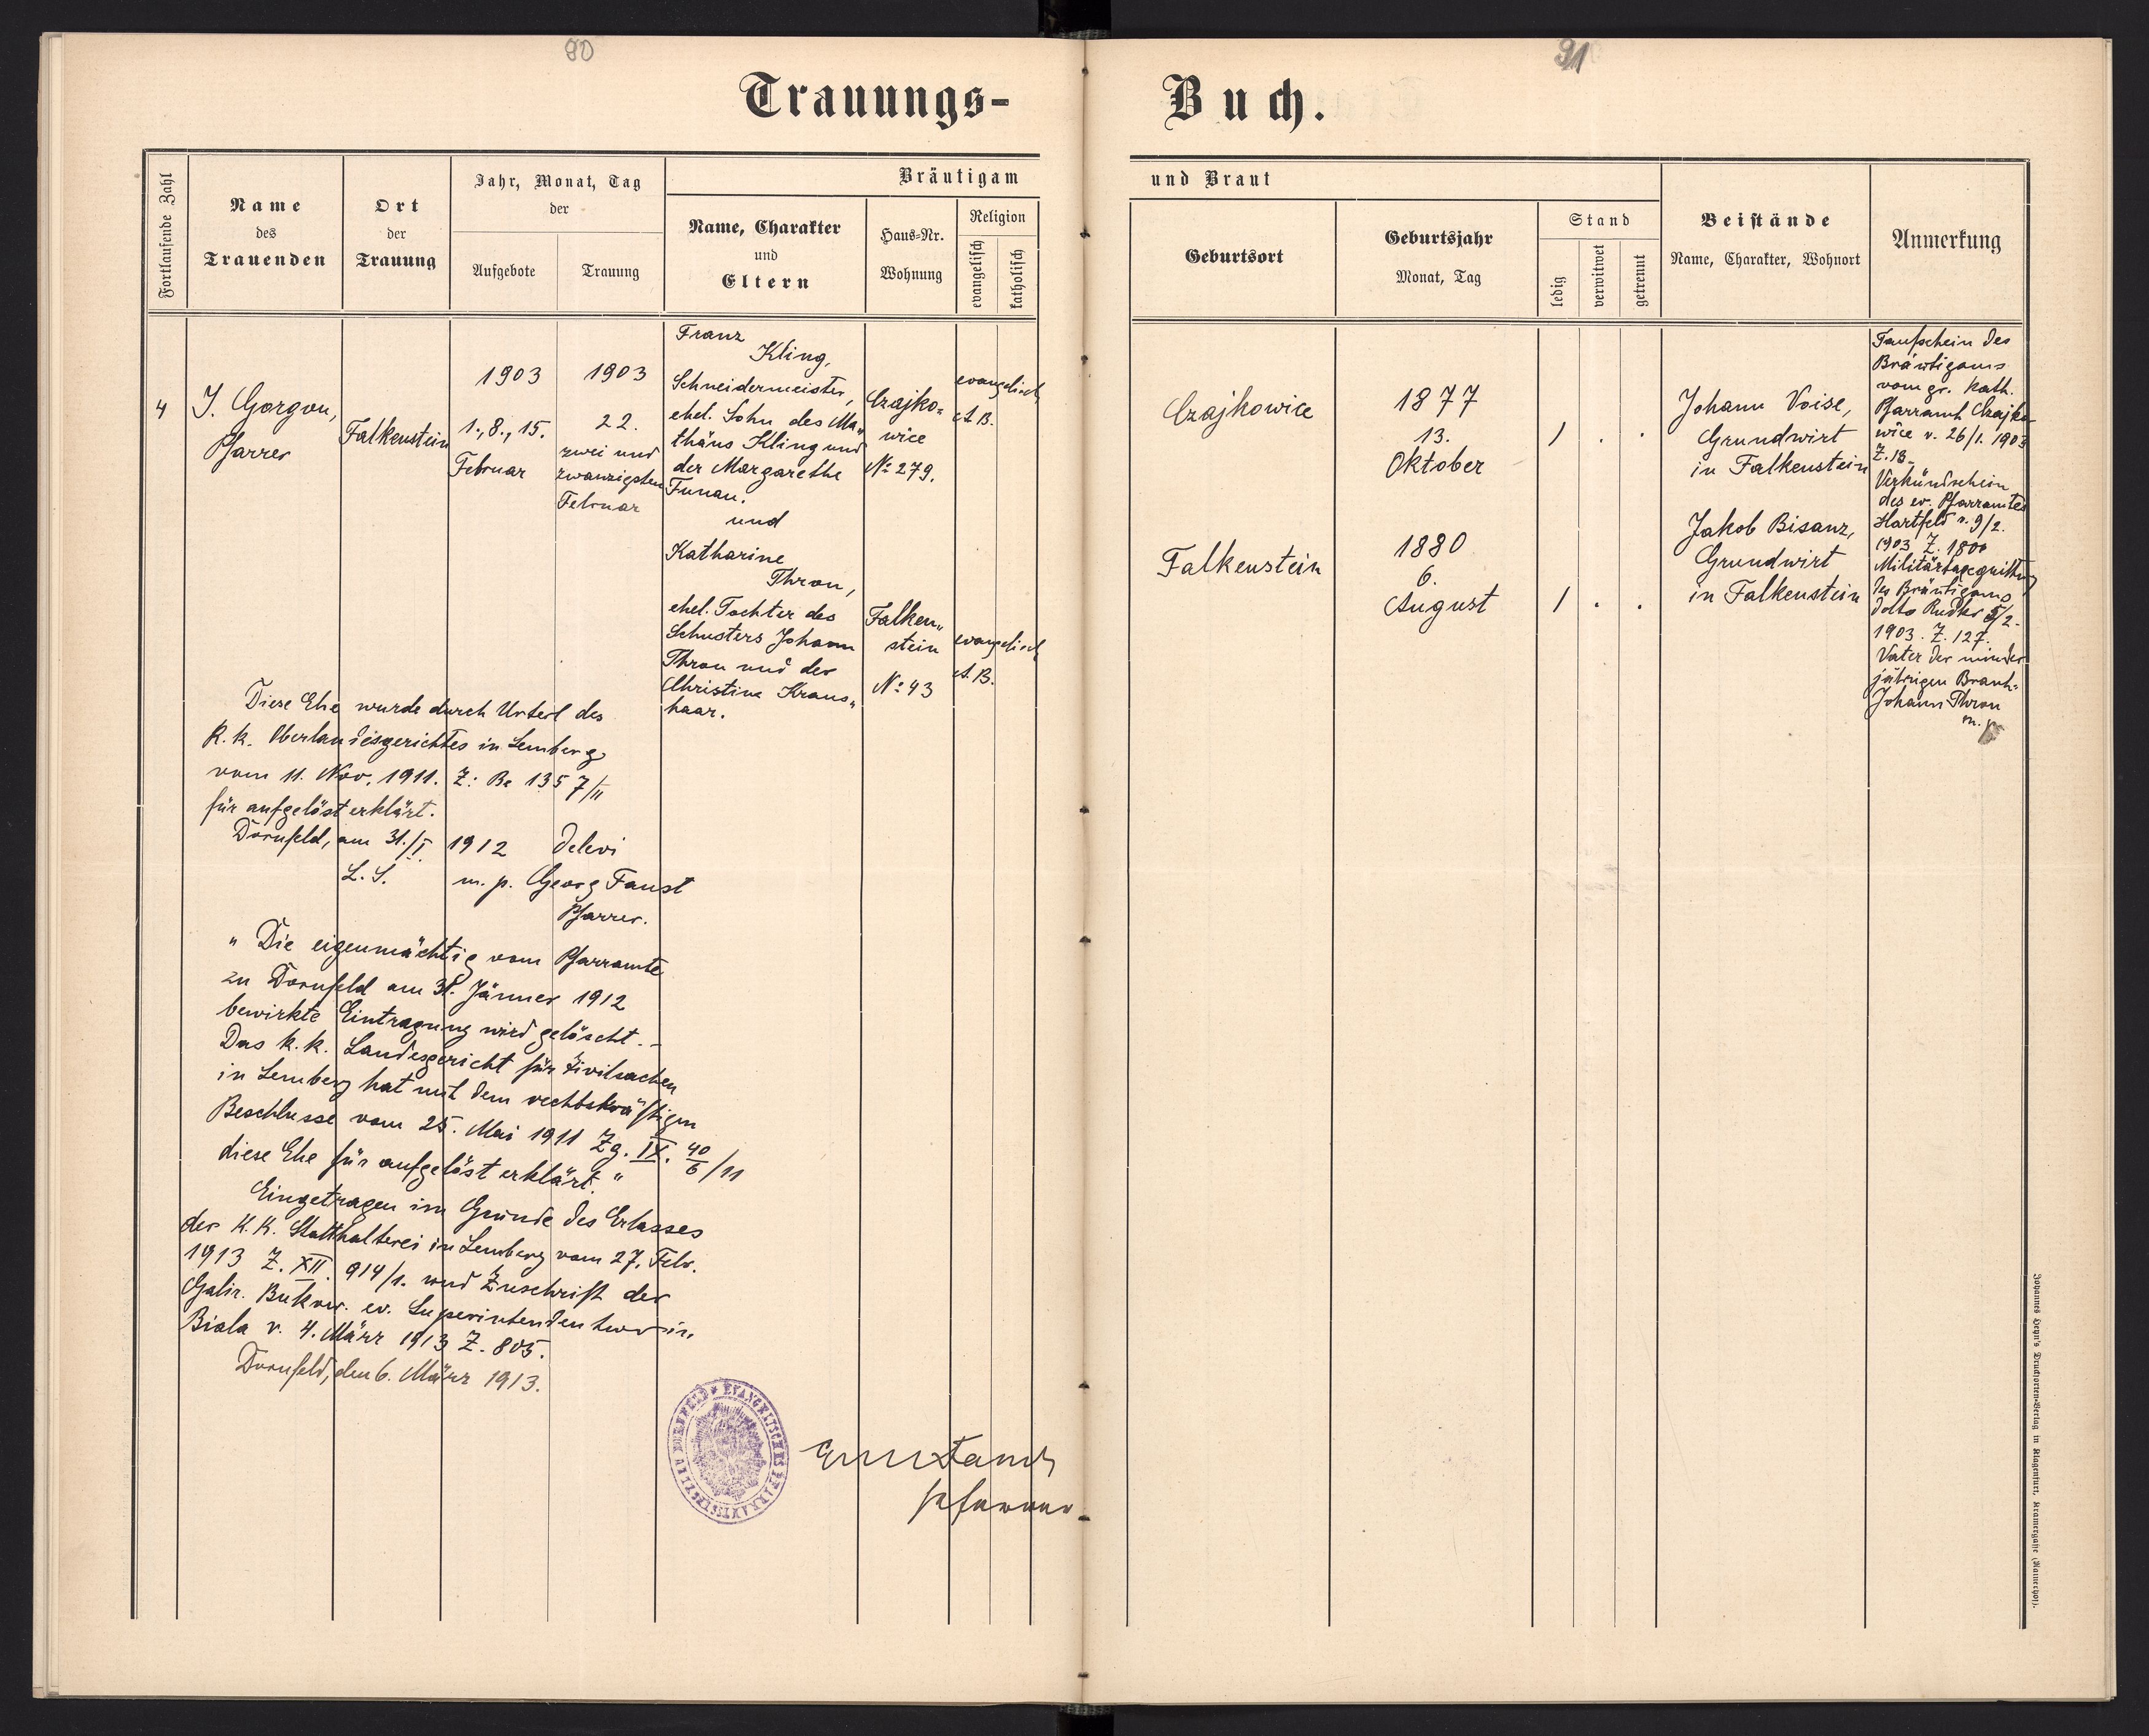 90
91
Trauungs-
Buch.
Fortlaufende Zahl
Name
des
Trauenden
Ort
der
Trauung
Jahr, Monat, Tag
der
Aufgebote
Trauung
Bräutigam
Name, Charakter
und
Eltern
Haus-Nr.
Wohnung
Religion
evangelisch
katholisch
und Braut
Geburtsort
Geburtsjahr
Monat, Tag
Stand
ledig
verwitwet
getrennt
Beistände
Name, Charakter, Wohnort
Anmerkung
4
J. Gorgon,
Pfarrer
Falkenstein
1903
1., 8., 15.
Februar
1903
22.
zwei und
zwanzigsten
Februar
Franz
Kling,
Schneidermeister,
ehel. Sohn des Ma„
thäus Kling und
der Margarethe
Funau.
und
Katharine
Thron,
ehel. Tochter des
Schusters Johann
Thron und der
Christine Kraus„
haar.
Czajko=
wice
№ 279.
Falken„
stein
№ 43
evangelisch
A. B.
evangelisch
A. B.
Czajkowice
1877
13.
Oktober
1 . .
Falkenstein
1880
6.
August
1 . .
Johann Voise,
Grundwirt
in Falkenstein
Jakob Bisanz,
Grundwirt
in Falkenstein
Taufschein des
Bräutigams
vom gr. kath.
Pfarramt Czajko
wice v. 26/1. 1903
Z. 13.
Verkündschein
des ev. Pfarramtes
Hartfeld v. 9/2.
1903 Z. 1800
Militärtaxquittung
des Bräutigams
dolto Rudki 5/2.
1903. Z. 127.
Vater der minder
jährigen Braut:
Johann Thron
m. p
Diese Ehe wurde durch Urteil des
k. k. Oberlandesgerichtes in Lemberg
vom 11. Nov. 1911. Z: Bc 1357/11
für aufgelöst erklärt.
Dornfeld, am 31./I. 1912 delevi
L. S. m. p. Georg Faust
Pfarrer.
„ Die eigenmächtig vom Pfarramte
zu Dornfeld am 31. Jänner 1912
bewirkte Eintragung wird gelöscht.-
Das k. k. Landesgericht für Zivilsachen
in Lemberg hat mit dem rechtskräftigen
Beschlusse vom 25. Mai 1911 Zg. IX. 40/6/11
diese Ehe für aufgelöst erklärt. "
Eingetragen im Grunde des Erlasses
der K. K. Statthalterei in Lemberg vom 27. Febr.
1913 Z. XII. 914/1. und Zuschrift der
Galiz. Bukow. ev. Superintendentur in
Biala v. 4. März 1913 Z. 805.
Dornfeld, den 6. März 1913.
EVANGELISCHES PFARRAMT
DORNFELD
Pfarrer
Johannes Heyn's Drucksorten-Verlag in Klagenfurt, Kramergasse (Kamerhof).